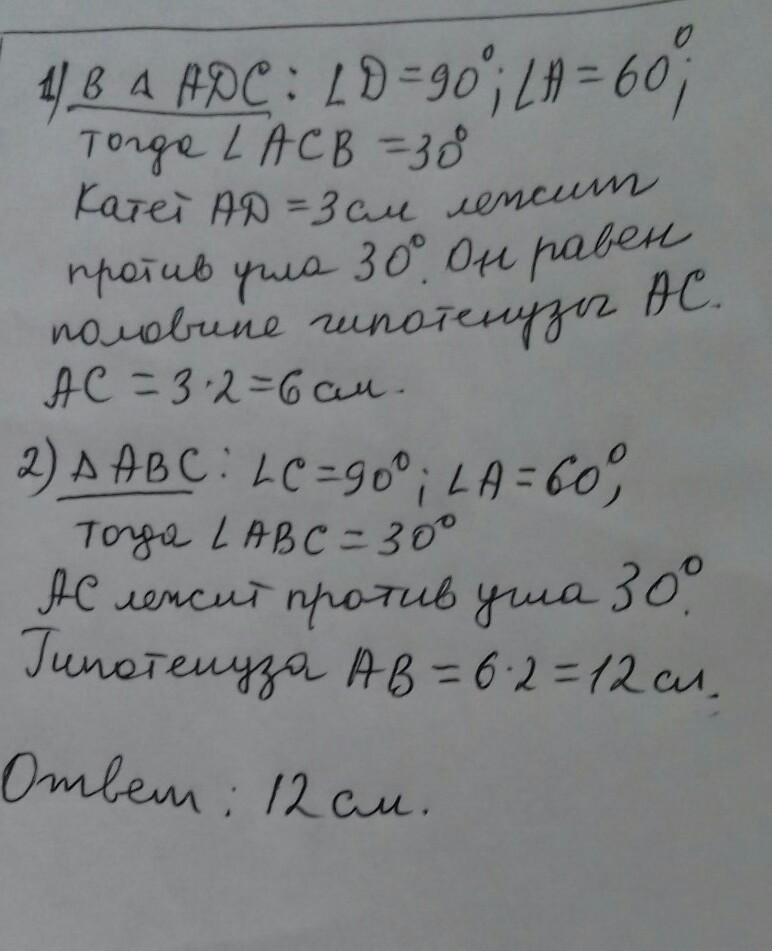 1) В Δ ADC: ∠D = 90°; ∠A = 60°;
тогда ∠ACB = 30°
Катет AD = 3 см лежит
против угла 30°. Он равен
половине гипотенузы AC.
AC = 3·2 = 6 см.
2) Δ ABC: ∠C = 90°; ∠A = 60°,
тогда ∠ABC = 30°
AC лежит против угла 30°.
Гипотенуза AB = 6·2 = 12 см.
Ответ: 12 см.